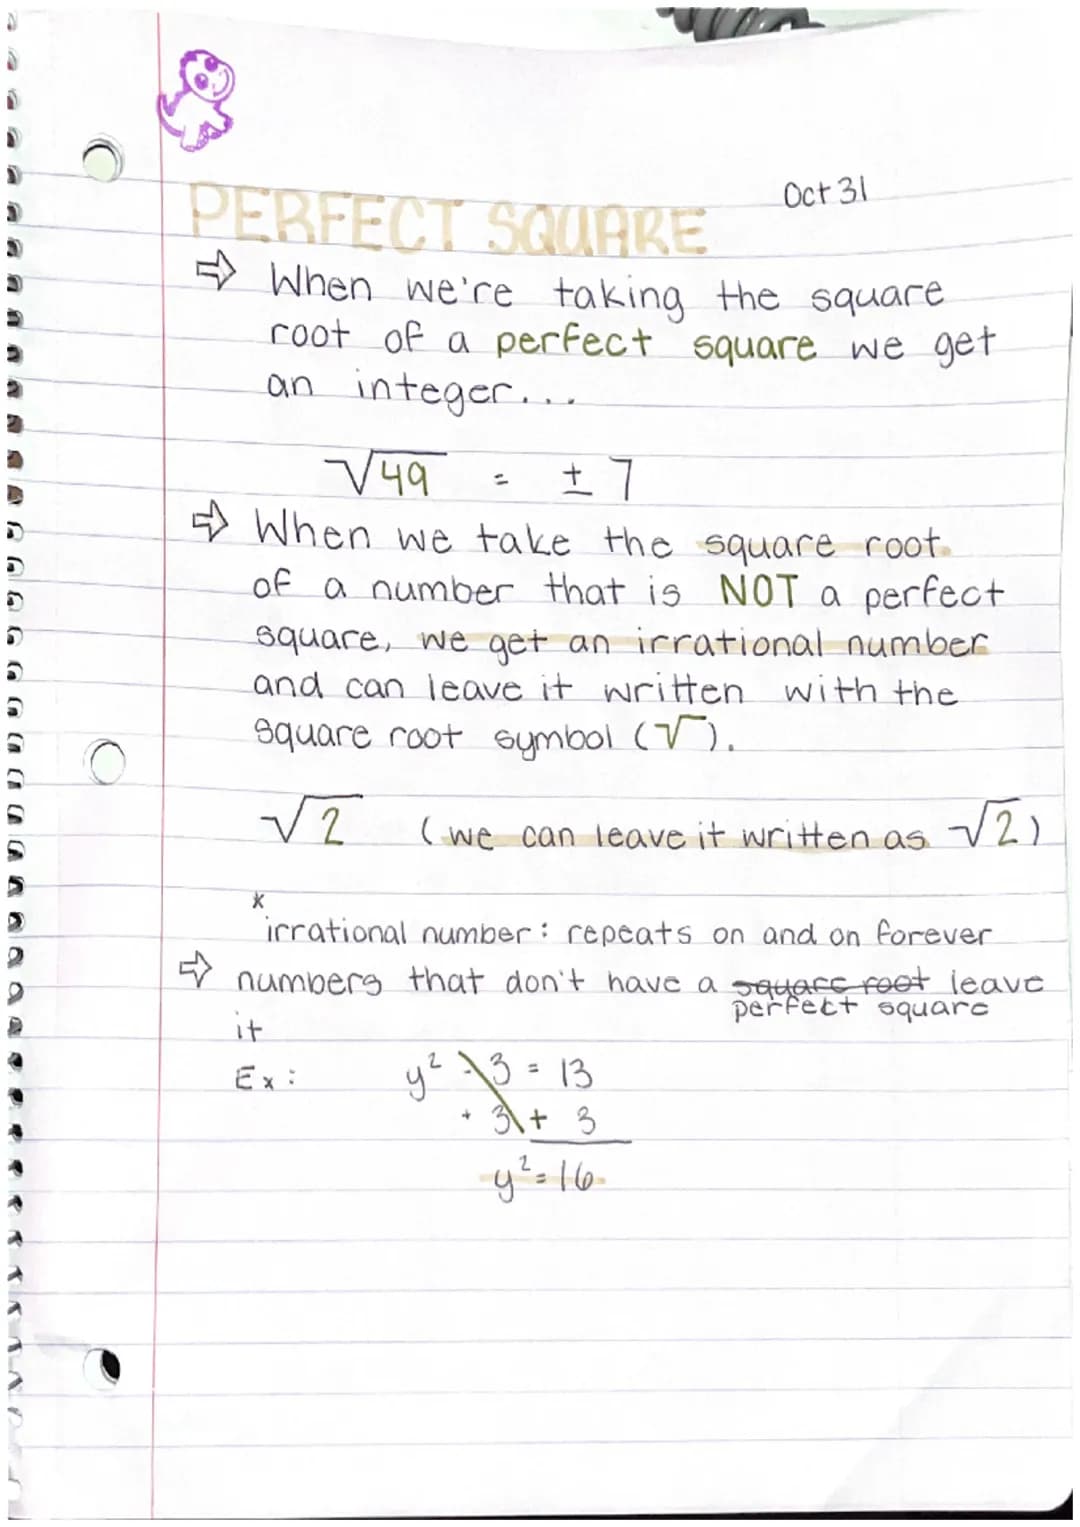 Oct 31
PERFECT SQUARE
⇨ When we're taking the square
root of a perfect square we get
an integer...
√49 = ± 7
⇨ When we take the square root
of a number that is NOT a perfect
square, we get an irrational number
and can leave it written with the
square root symbol (√).
√2 (we can leave it written as √2)
*
irrational number: repeats on and on forever
⇨ numbers that don't have a square root leave
perfect square
it
Ex: y² - 3 = 13
+ 3 + 3
y² = 16